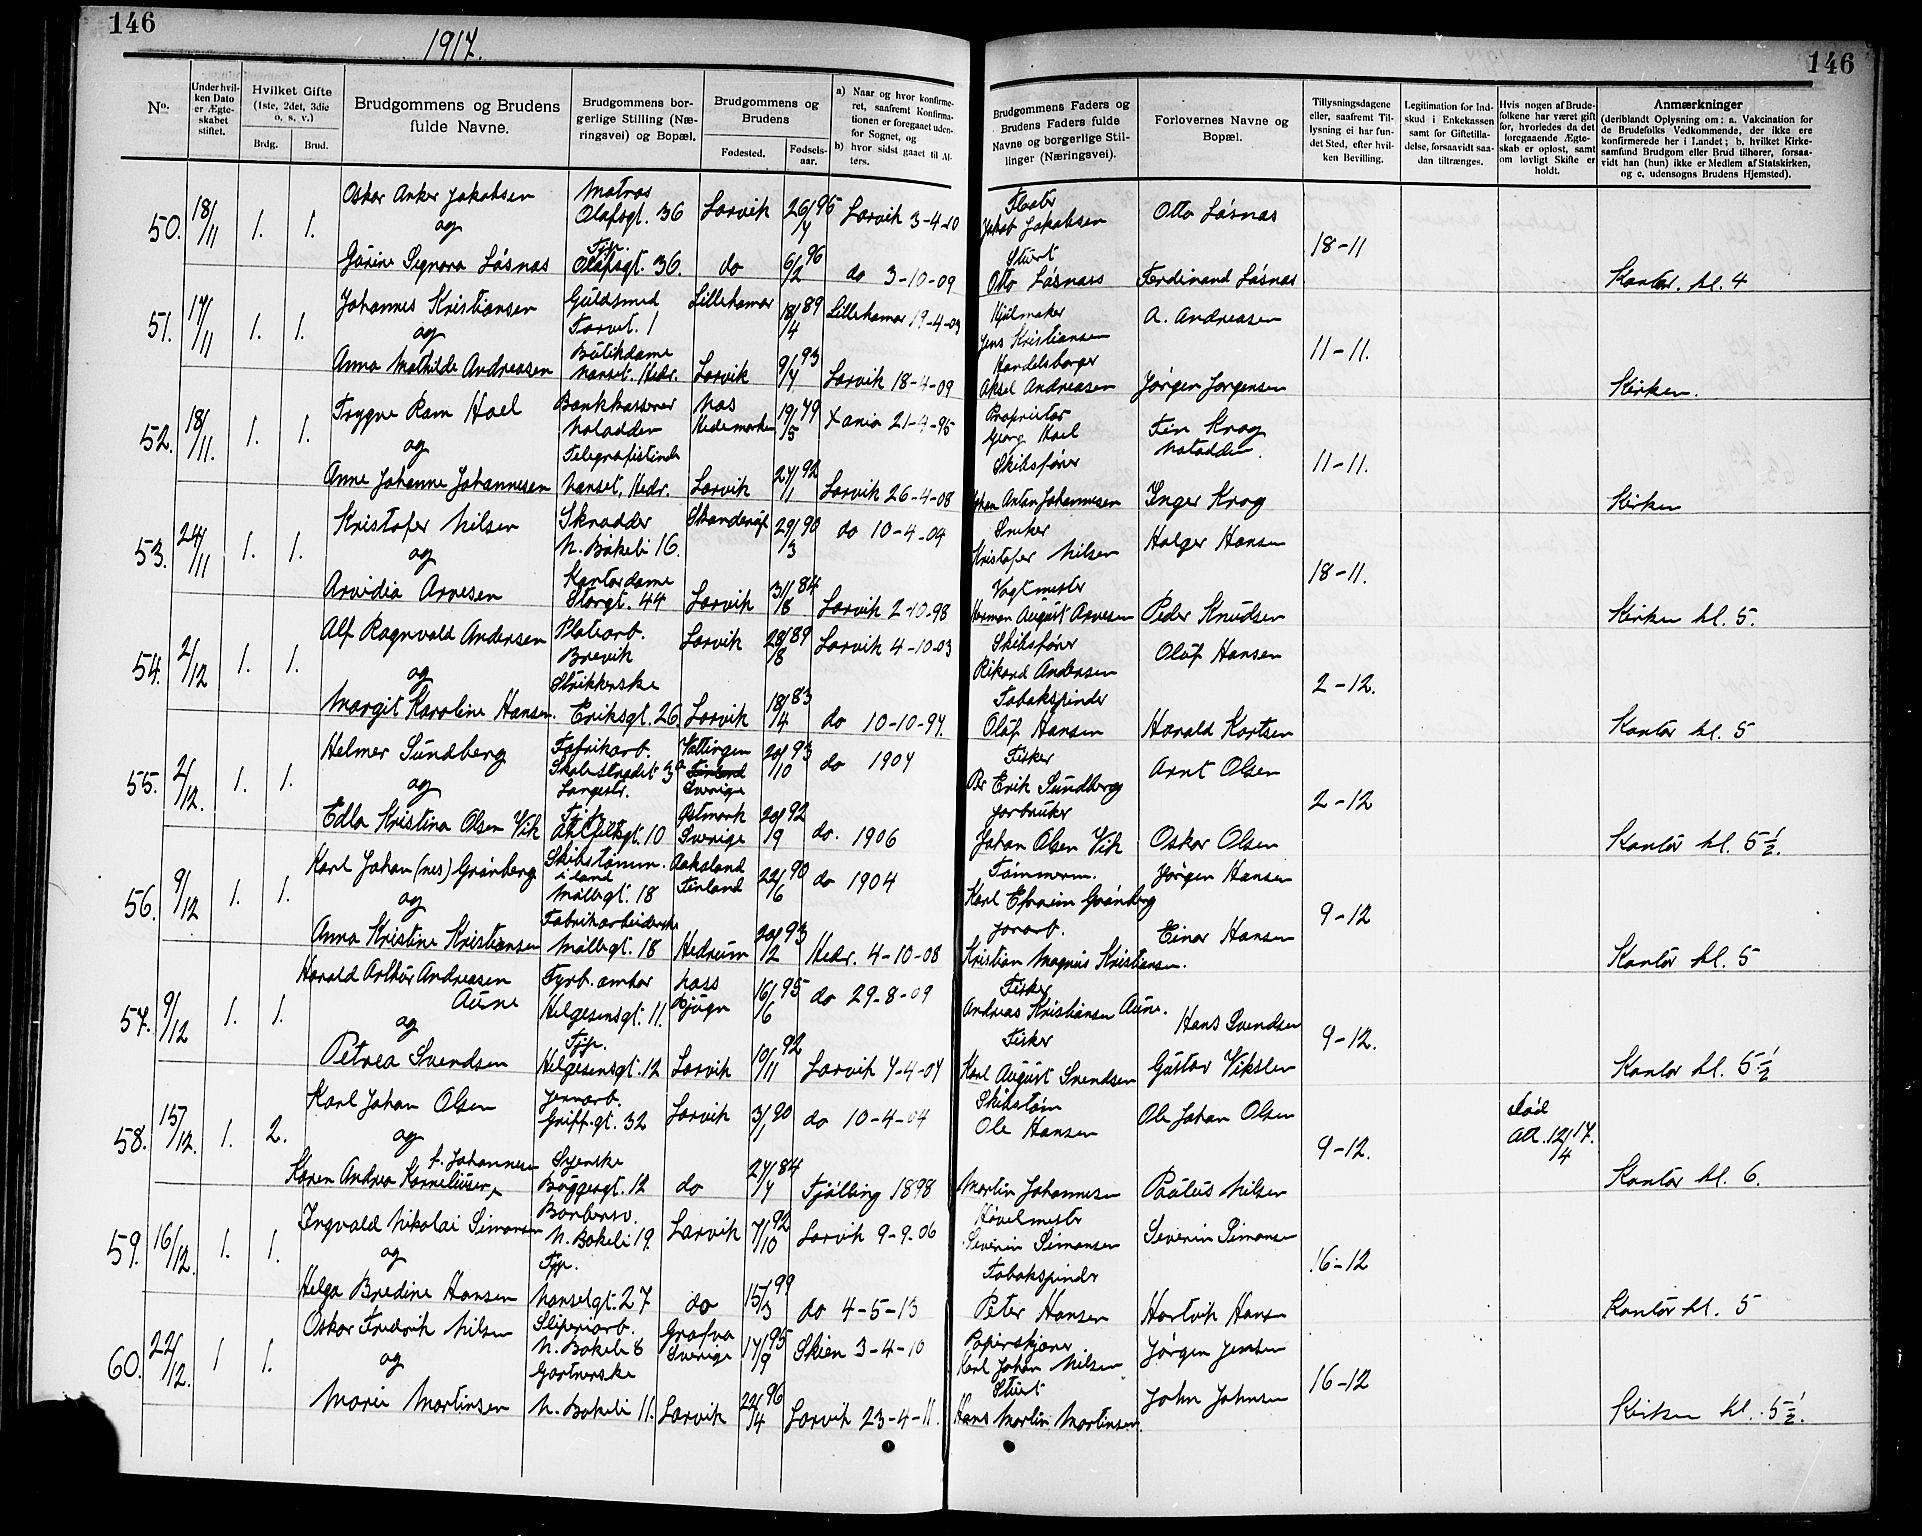 146
1917.
146
No.
Under hvilken Dato er Ægteskabet stiftet.
Hvilket Gifte (1ste, 2det, 3die o. s. v.)
Brdg. Brud.
Brudgommens og Brudens fulde Navne.
Brudgommens borgerlige Stilling (Næringsvei) og Bopæl.
Brudgommens og Brudens
Fødested. Fødselsaar.
a) Naar og hvor konfirmeret, saafremt Konfirmationen er foregaaet udenfor Sognet, og
b) hvor sidst gaaet til Alters.
Brudgommens Faders og Brudens Faders fulde Navne og borgerlige Stillinger (Næringsvei).
Forlovernes Navne og Bopæl.
Tillysningsdagene eller, saafremt Tillysning ei har fundet Sted, efter hvilken Bevilling.
Legitimation for Indskud i Enkekassen samt for Giftetilladelse, forsaavidt saadan tiltrænges.
Hvis nogen af Brudefolkene har været gift for, hvorledes da det foregaaende Ægteskab er opløst, samt om lovligt Skifte er holdt.
Anmærkninger
(deriblandt Oplysning om: a. Vakcination for de Brudefolks Vedkommende, der ikke ere konfirmerede her i Landet; b. hvilket Kirkesamfund Brudgom eller Brud tilhører, forsaavidt han (hun) ikke er Medlem af Statskirken, og c. udensogns Brudens Hjemsted).
50. 18/11 1. 1. Oskar Anker Jakobsen Matros Olafsgt. 36 Larvik 26/4 95 Larvik 3-4-10 Jakob Jakobsen Otto Låsnas 18-11
og
Gurine Signora Låsnas Tjp. Olafsgt. 36. do 6/2 96 do 3-10-09 Stuert Otto Låsnass Ferdinand Låsnas Kontor. kl. 4
51. 17/11 1. 1. Johannes Kristiansen Guldsmed Torvet. 1 Lillehamar 18/4 89 Lillehamar 19-4-03 Hjulmaker Jens Kristiansen A. Andreasen 11-11.
og
Anna Mathilde Andreasen Butikdame Nanset. Hedr. Larvik 9/4 93 Larvik 18-4-09 Handelsborger Aksel Andreasen Jørgen Jørgensen Kirken.
52. 18/11. 1. 1. Trygve Ram Hoel Bankkasserer Notodden Nas Hedemarken 19/5 79 Xania 21-4-95 Proprietær Georg Hoel Fin Krog Notodden. 11-11.
og
Anne Johanne Johannesen Telegrafistinde Nanset, Hedr. Larvik 27/1 92 Larvik 26-4-08 Skibsfører Johan Anton Johannesen Inger Krog Kirken
53. 24/11 1. 1. Kristofer Nilsen Skrædder N. Bøkeli 16. Skanderup 29/3 90 do 10-4-04 Snekker Kristofer Nilsen Holger Hansen 18-11.
og
Arvidia Arvesen Kontordame Storgt. 44 Larvik 31/8 84 Larvik 2-10-98 Vagtmester Herman August Arvesen Peder Knudsen Kirken kl. 5.
54. 2/12 1. 1. Alf Ragnvald Andersen Platearb. Brevik Larvik 28/8 89 Larvik 4-10-03 Skibsfører Rikard Andersen Oluf Hansen 2-12.
og
Margit Karoline Hansen. Strikkerske Eriksgt. 26 Larvik 18/4 83 do 10-10-97. Tobakspinder Oluf Hansen Harald Kortsen Kontor kl. 5
55. 2/12. 1. 1. Helmer Sundberg Fabrikarb. Skolestrædet 3a Langestr. Finland Sverige 20/10 93 do 1907 Fisker Per Erik Sundberg Arnt Olsen 2-12
og
Edla Kristina Olsen Vik 10 Østmark Sverige 20/9 92 do. 1906 Jorbruker Johan Olsen Vik Oskar Olsen Kontor kl. 5 1/2.
56. 9/12 1. 1. Karl Johan (nes) Grønberg Skibstømm. i land Møllegt. 18 Aaland Finland 22/6 90 do 1904 Tømmerm. Karl Efraim Grønberg Jørgen Hansen 9-12
og
Anna Kristine Kristiansen Fabrikarbeiderske Møllegt. 18 Hedrum 20/12 93 Hedr. 4-10-08 Jorarb. Kristian Magnus Kristiansen. Einar Hansen Kontor kl. 5
57. 9/12 1. 1. Harald Arthur Andreasen Aune Fyrb. ombor Helgesensgt. 11. Bjugn 16/6 95 do 29-8-09 Fisker Andreas Kristiansen Aune. Hans Svendsen 9-12.
og
Petrea Svendsen Tjp. Helgesensgt. 12 Larvik 10/11 92 Larvik 7-4-07 Fisker Karl August Svendsen Gustav Kontor kl. 5 1/2
58. 15/12. 1. 2. Karl Johan Olsen Jernarb. Griff. gt. 32 Larvik 3/1 90 do 10-4-04 Skibstøm Ole Hansen Ole Johan Olsen 9-12. død Att. 12/4 17.
og
Karen Andrea Korneliusen, f. Johannesen Syerske Byggesgt. 12 do 27/4 84 Tjølling 1898 Martin Johannesen Paulus Nilsen Kontor kl. 6.
59. 16/12. 1. 1. Ingvald Nikolai Simonsen Barbersv. N. Bøkeli 19. Larvik 7/10 92 Larvik 9-9-06 Høvelmester Severin Simonsen Severin Simonsen 16-12
og
Helga Bredine Hansen Tjp. Nansetgt. 27 do 15/3 99 do 4-5-13 Tobakspinder Peter Hansen Hartvik Hans Kontor kl. 5
60. 22/12. 1 1. Oskar Fredrik Nilsen Sliperiarb. N. Bøkeli 8 Grafva Sverige 17/9 95 Skien 3-4-10 Karl Johan Nilsen Jørgen Jensen 16-12
og
Marie Martinsen Gartnerske N. Bøkeli 11. Larvik 22/4 96 Larvik 23-4-11. Stuert Hans Martin Martinsen. John Johnsen Kirken kl. 5 1/2.